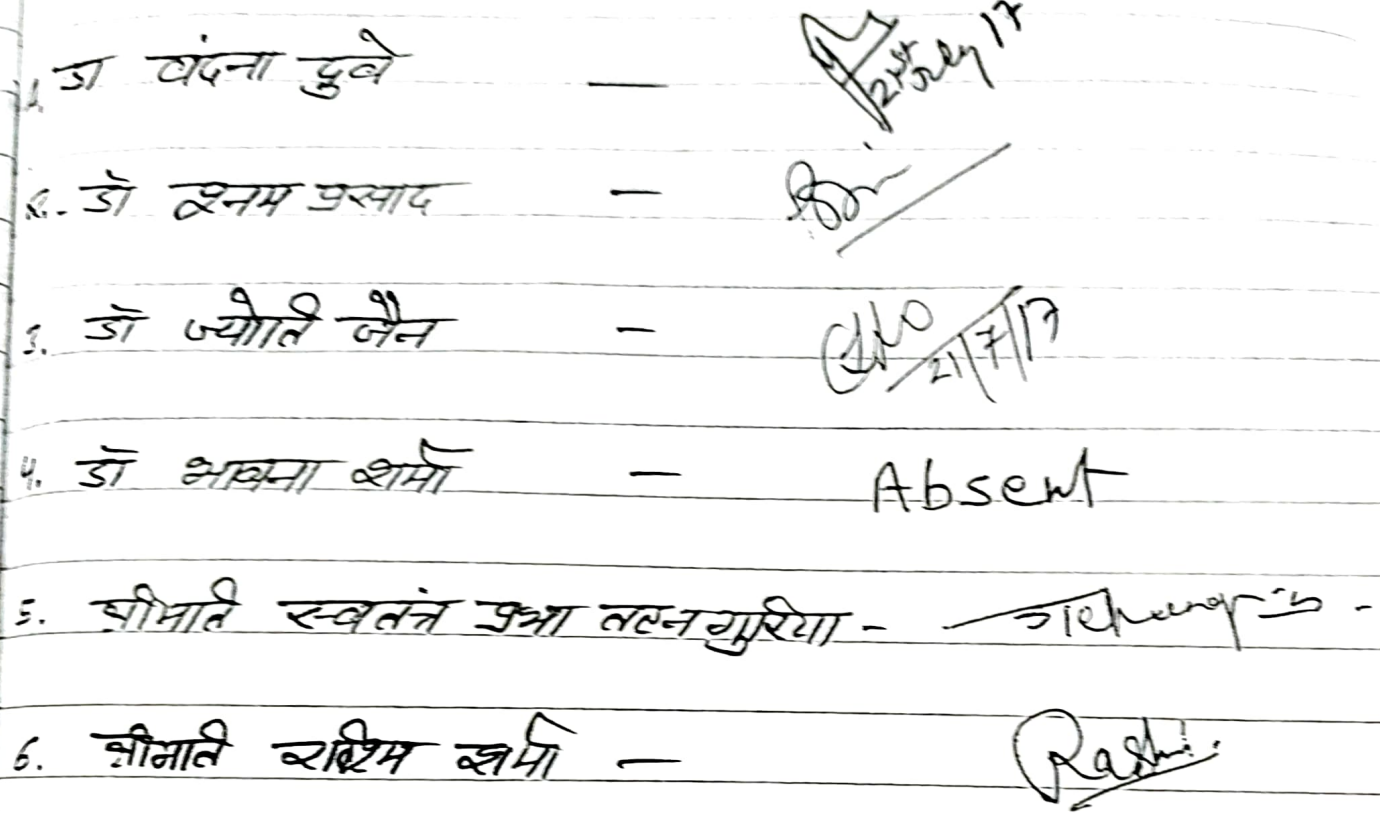 1. डा वंदना दुबे — 21st July 17
2. डॉ प्रसाद —
3. डॉ ज्योति जैन — 21/7/17
4. डॉ भावना शर्मा — Absent
5. श्रीमति स्वतंत्र प्रभा तलनगुरिया -
6. श्रीमति रश्मि शर्मा — Rashmi